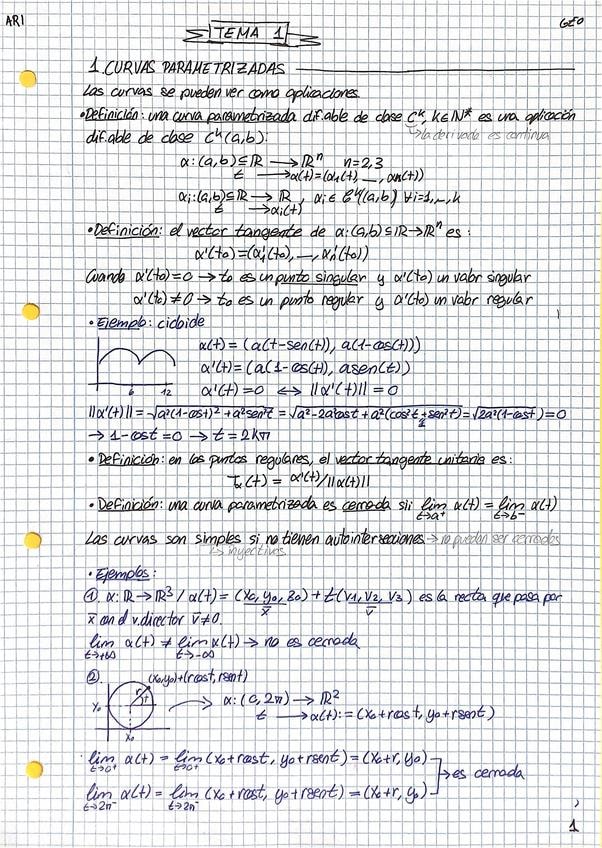 ARI
TEMA 1
GEO
1. CURVAS PARAMETRIZADAS
Las curvas se pueden ver como aplicaciones.
• Definición: una curva parametrizada dif.able de clase Cᵏ, k∈ℕ* es una aplicación
→ la derivada es continua
dif.able de clase Cᵏ(a,b):
α: (a,b) ⊆ ℝ → ℝⁿ n=2,3
t → α(t) = (α₁(t), ..., αn(t))
αi: (a,b) ⊆ ℝ → ℝ, αi ∈ Cᵏ(a,b) ∀i=1,...,k
t → αi(t)
• Definición: el vector tangente de α: (a,b) ⊆ ℝ → ℝⁿ es:
α'(t₀) = (α₁'(t₀), ..., αn'(t₀))
Cuando α'(t₀)=0 → t₀ es un punto singular y α'(t₀) un valor singular
α'(t₀)≠0 → t₀ es un punto regular y α'(t₀) un valor regular
• Ejemplo: cicloide
α(t) = (a(t-sen(t)), a(1-cos(t)))
α'(t) = (a(1-cos(t)), a sen(t))
α'(t)=0 ↔ ||α'(t)|| = 0
6 12
||α'(t)|| = √a²(1-cost)² + a²sen²t = √a²-2a²cost + a²(cos²t + sen²t) = √2a²(1-cost) = 0
1
→ 1-cost=0 → t=2kπ
• Definición: en los puntos regulares, el vector tangente unitario es:
Tα(t) = α'(t)/||α(t)||
• Definición: una curva parametrizada es cerrada sii lim t→a⁺ α(t) = lim t→b⁻ α(t)
Las curvas son simples si no tienen autointersecciones → no pueden ser cerradas
→ inyectivas
• Ejemplos:
① α: ℝ→ℝ³ / α(t) = (x₀, y₀, z₀) + t(v₁, v₂, v₃) es la recta que pasa por
x̄ v̄
x̄ con el v.director v̄≠0.
lim t→+∞ α(t) ≠ lim t→-∞ α(t) → no es cerrada
② (x₀,y₀)+(rcost, rsent)
r t
y₀
x₀
→ α: (0,2π) → ℝ²
t → α(t) := (x₀+rcost, y₀+rsent)
lim t→0⁺ α(t) = lim t→0⁺ (x₀+rcost, y₀+rsent) = (x₀+r, y₀)
→ es cerrada
lim t→2π⁻ α(t) = lim t→2π⁻ (x₀+rcost, y₀+rsent) = (x₀+r, y₀)
1